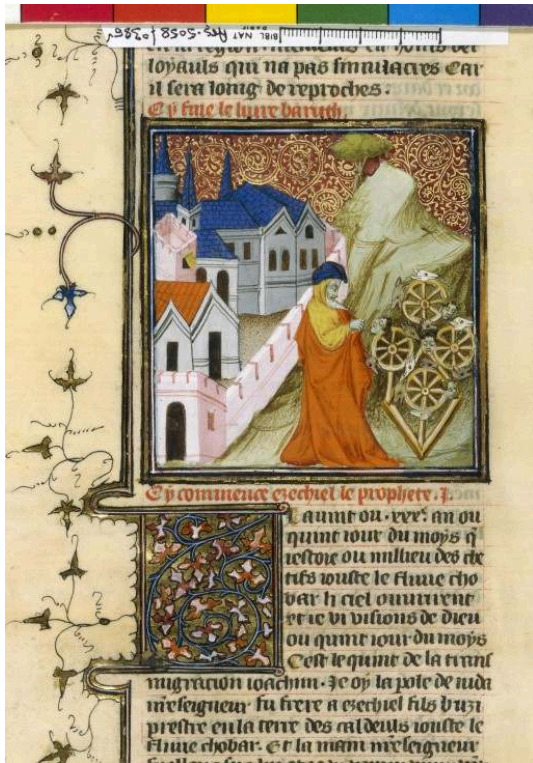 BIBL. NAT PARIS
Ars-5058 fo386v
loyauls qui na pas simulacres Car
il sera loing de reproches.
Cy fine le liure baruch.
Cy commence ezechiel le prophete. j.
Lauint ou xxxe an ou
quint iour du moys q
iestoie ou millieu des che
tifs iouste le fluue cho
bar li ciel ouurirent
et ie vi visions de dieu
ou quint iour du moys
Cest le quint de la trans
migracion ioachim. Je oy la pole de iuda
nreseigneur fu frere a ezechiel fils buzi
prestre en la terre des caldeuls iouste le
fluue chobar. Et la main nreseigneur